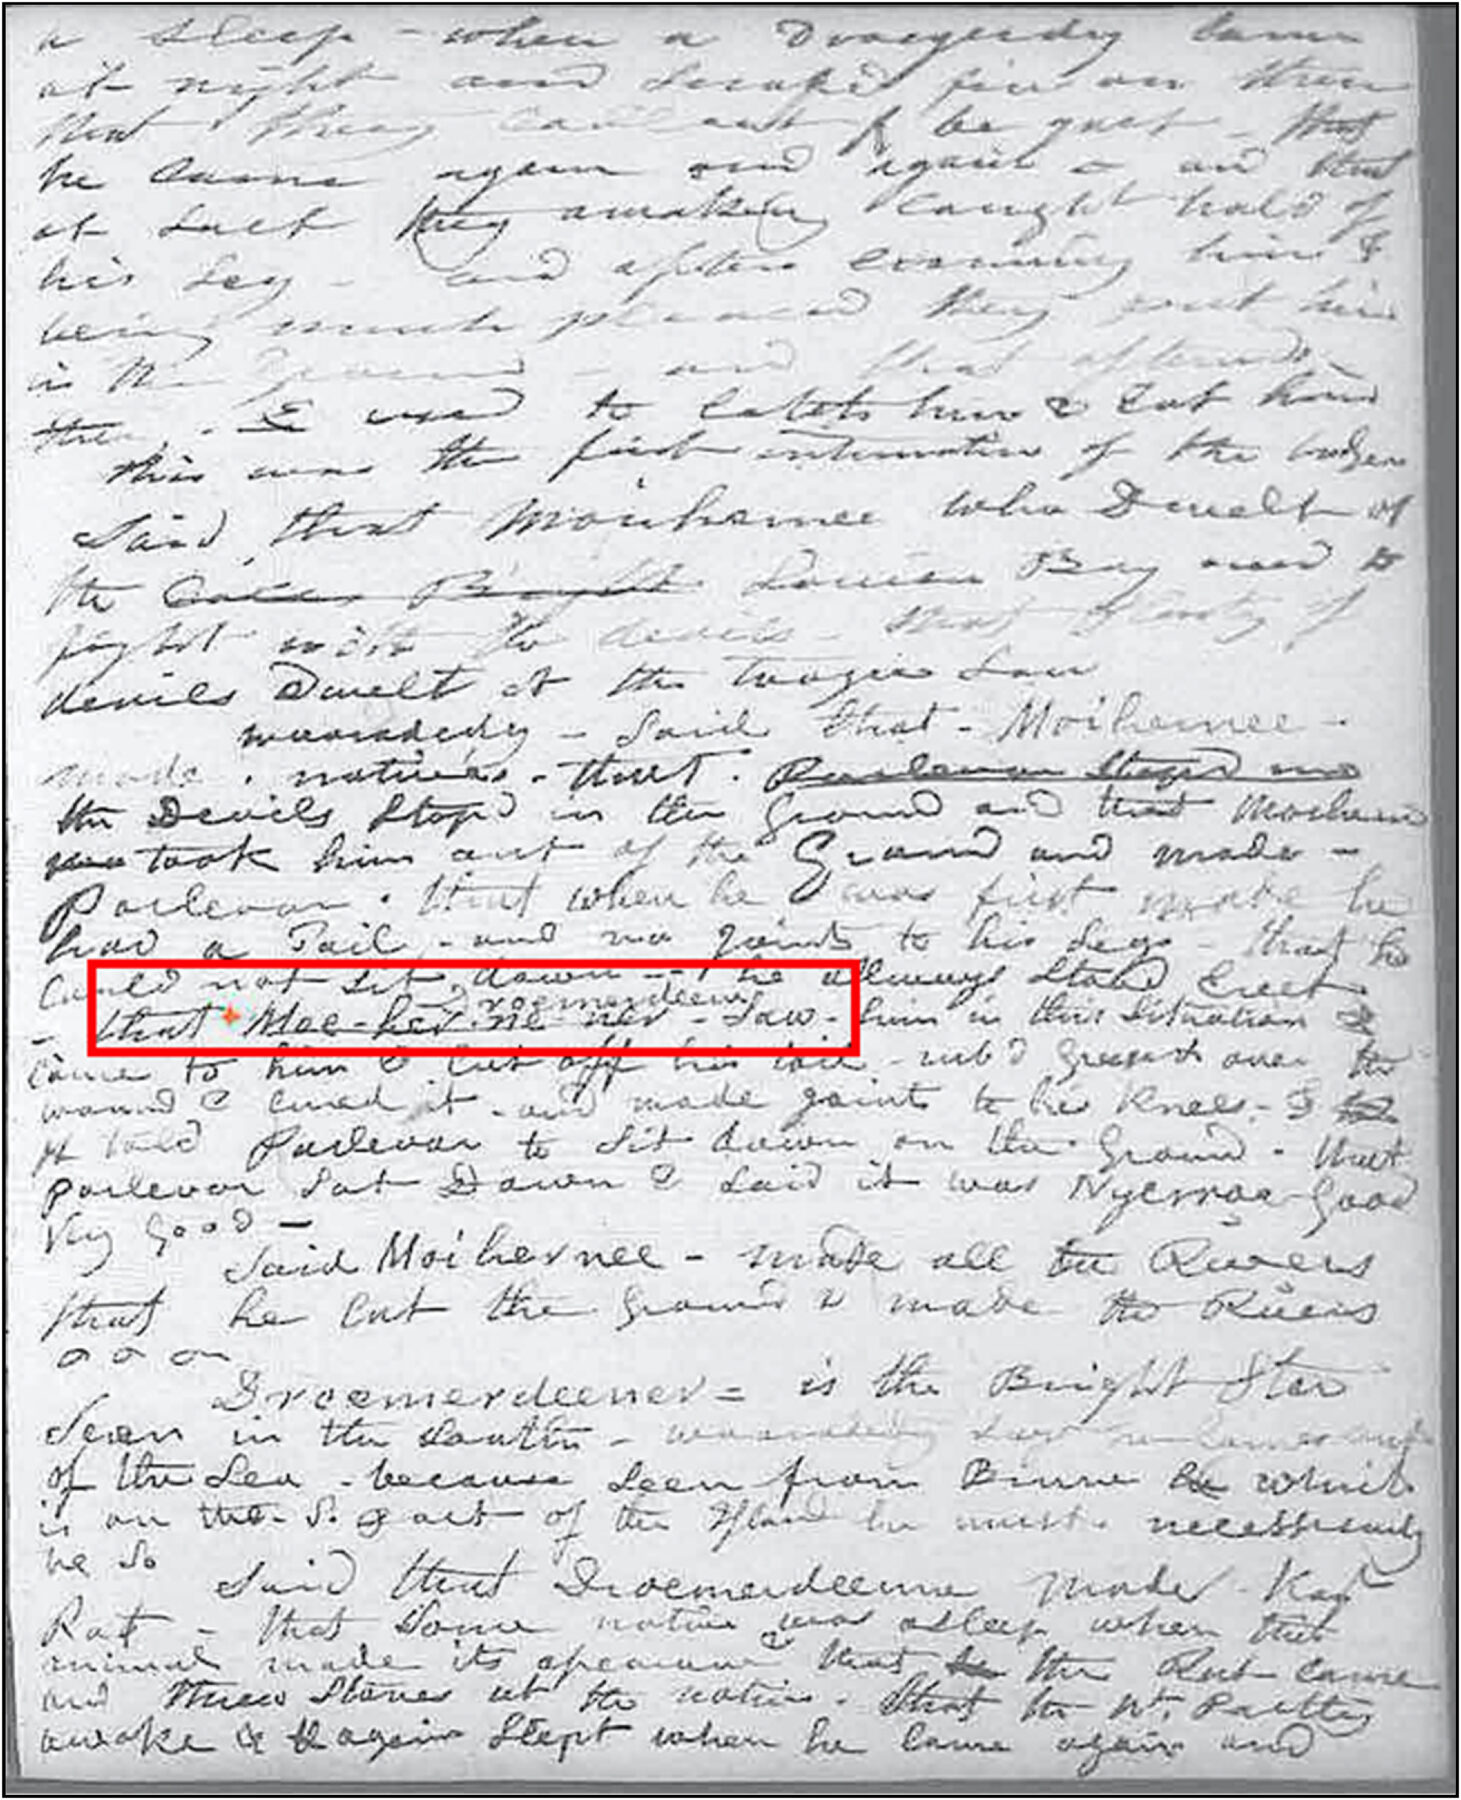 a sleep - when a Droegerdy came
at night and scrap'd fire on them
that they be
he came again and again - and that
at last they awaking caught hold of
his leg - and after examining him &
being much pleased they put him
in the ground - and that afterwards
then. I used to catch him & eat him
this was the first intimation of the
Said that Moihernee who Dwelt at
the Louisa Bay used to
fight with the devils - that plenty of
devils Dwelt at the
woorrady - Said that - Moihernee -
made . natives - that . Parlevar Stop'd
the Devils Stop'd in the Ground and that Moihernee
took him out of the Ground and made -
Parlevar . that when he was first made he
had a Tail - and no joints to his Legs - that he
could not sit down - - he allways stood Erect
- that Moe-her-ne ner - Saw - him in this situation &
Droemerdeene
came to him & cut off his tail - rub'd grease over the
wound & cured it - and made joints to his Knees - &
told Parlevar to sit down on the Ground - that
parlevar sat Down & said it was Nyerrae Good
Very Good -
Said Moihernee - made all the Rivers
that he cut the ground & made the Rivers
Droemerdeener = is the Bright Star
Seen in the South - woorrady says he comes out
of the Sea - because seen from Brune which
is on the S. part of the Island he must necessarily
be so
Said that Droemerdeene made Kan
Rat - that some native was asleep when this
animal made its apearance that the Rat came
and threw stones at the native. that the Nt. Partly
awoke & again slept when he came again and